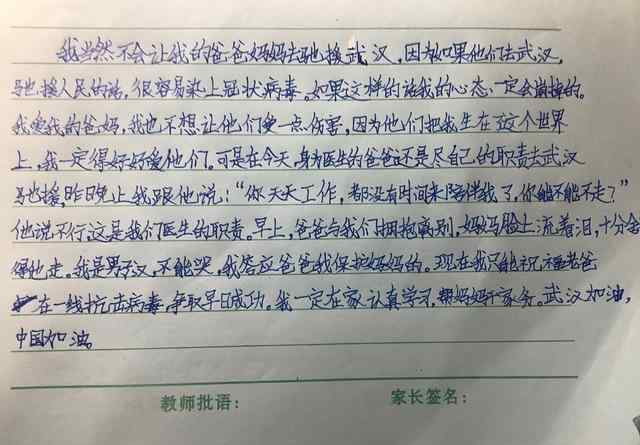 我当然不会让我的爸爸妈妈去驰援武汉,因为如果他们去武汉,
驰援人民的话,很容易染上冠状病毒。如果这样的话我的心态一定会崩掉的。
我爱我的爸妈,我也不想让他们受一点伤害,因为他们把我生在这个世界
上,我一定得好好爱他们。可是在今天,身为医生的爸爸还是尽自己的职责去武汉
驰援,昨日晚上我跟他说:“你天天工作,都没有时间来陪伴我了,你能不能不走?”
他说不行,这是我们医生的职责。早上,爸爸与我们拥抱离别,妈妈脸上流着泪,十分舍
得他走。我是男子汉,不能哭,我答应爸爸我保护妈妈的。现在我只能祝福爸爸
在一线抗击病毒,争取早日成功。我一定在家认真学习,帮妈妈干家务。武汉加油,
中国加油。
教师批语: 家长签名: